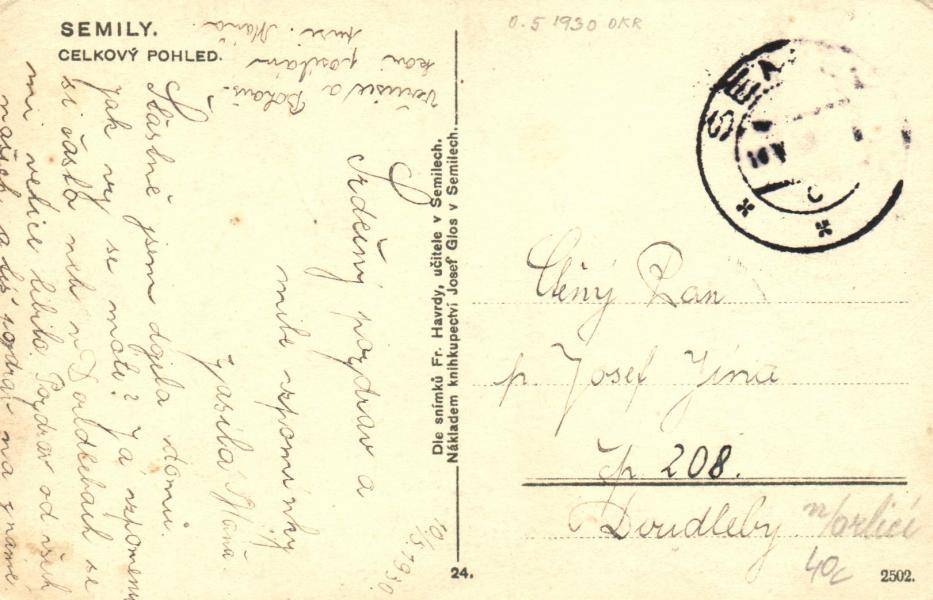 SEMILY.
CELKOVÝ POHLED.
0.5 1930 OKR
Srdečný pozdrav a
milé vzpomínky
zasílá Máňa.
10/5 1930
Šťastně jsem dojela domů.
Jak vy se máte? Já vzpomenu
si často neb v Doudlebách se
mi velice líbilo. Pozdrav od všech
našich a též pozdrav na známé
posílám
Máňa
Dle snímků Fr. Havrdy, učitele v Semilech.
Nákladem knihkupectví Josef Glos v Semilech.
24.
SEM
10 V
Ctěný Pan
p. Josef Jína
čp 208.
Doudleby n/orlicí
40c
2502.